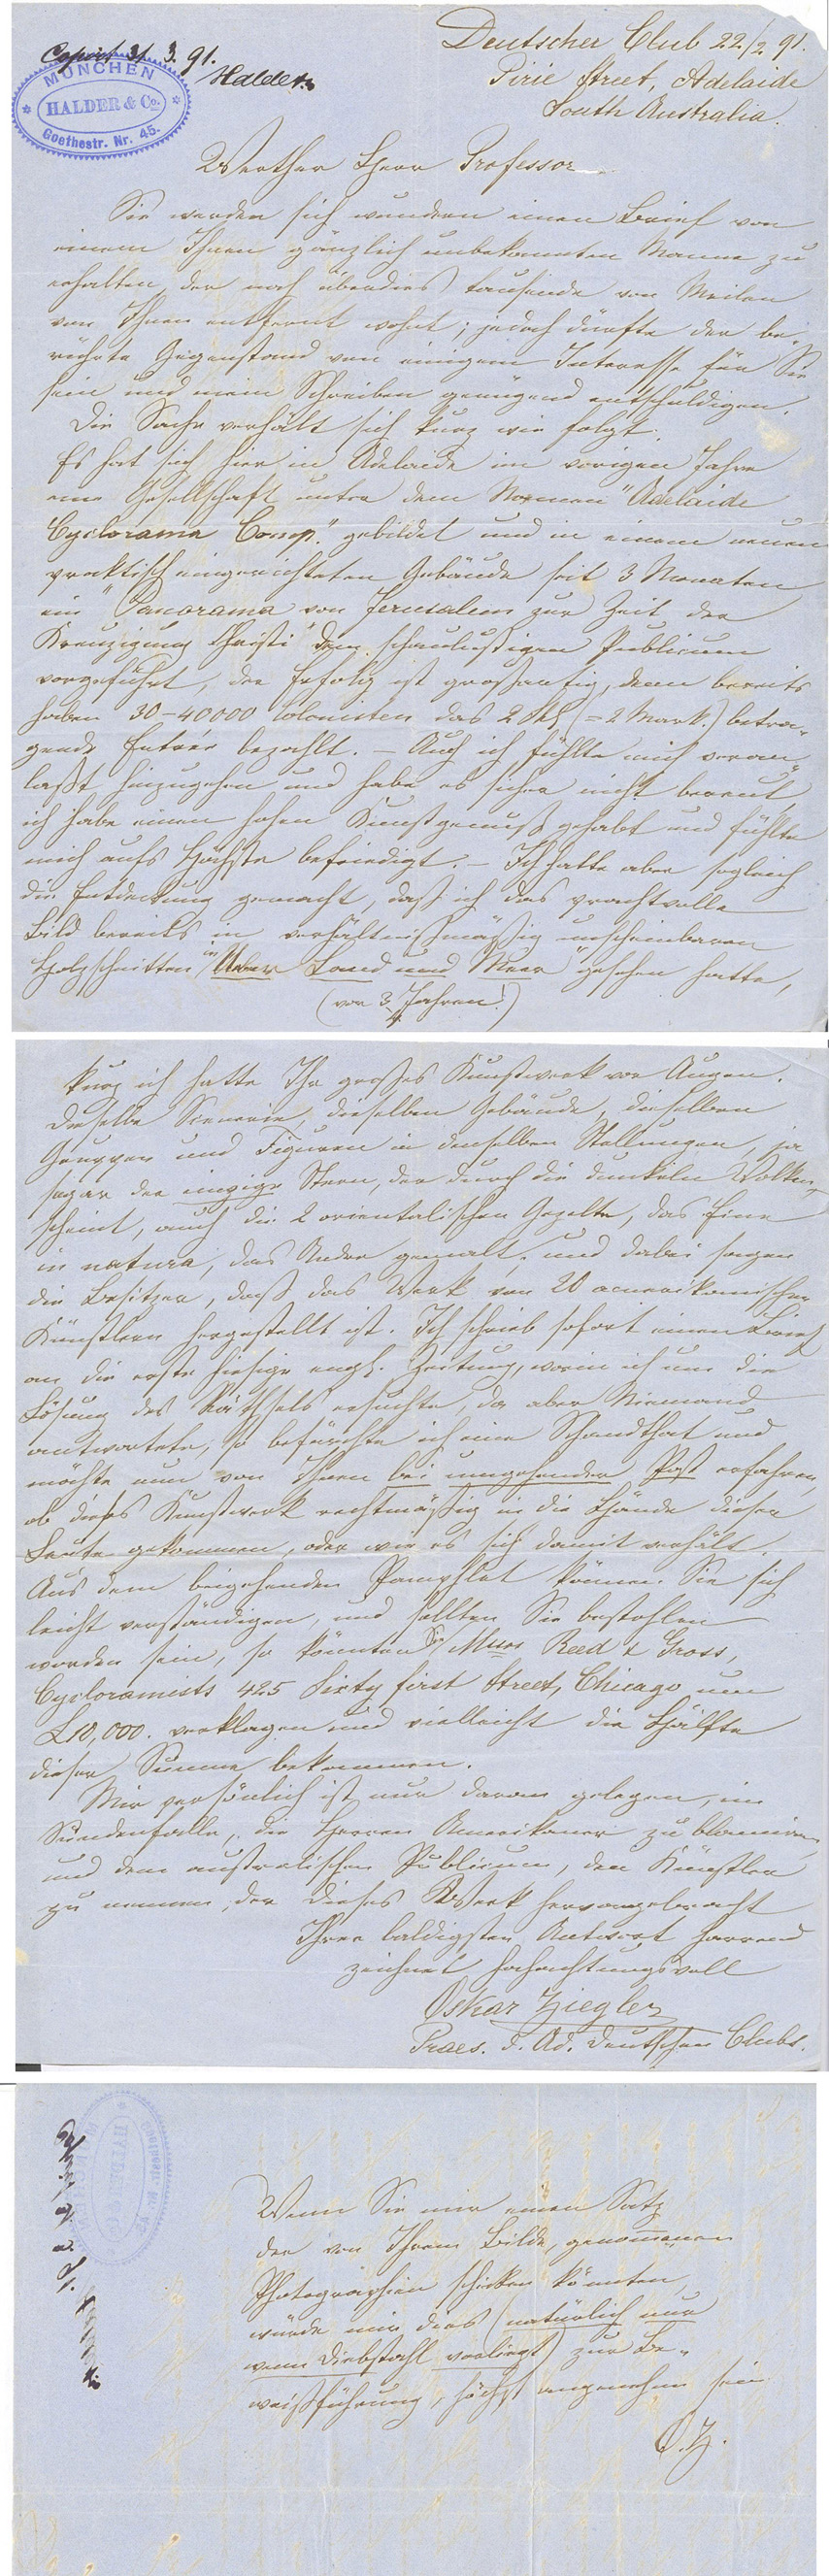 Copirt 31.3.91.
Halder
MÜNCHEN
HALDER & Co.
Goethestr. Nr. 45.
Deutscher Club 22/2 91.
Pirie Street, Adelaide
South Australia.
Werther Herr Professor
Sie werden sich wundern einen Brief von
einem Ihnen gänzlich unbekannten Manne zu
erhalten, der noch überdies tausende von Meilen
von Ihnen entfernt wohnt; jedoch dürfte der be„
rührte Gegenstand von einigem Interesse für Sie
sein und mein Schreiben genügend entschuldigen.
Die Sache verhält sich kurz wie folgt:
Es hat sich hier in Adelaide im vorigen Jahre
eine Gesellschaft unter dem Namen "Adelaide
Cyclorama Comp." gebildet und in einem neuen
praktisch eingerichteten Gebäude seit 3 Monaten
ein "Panorama von Jerusalem zur Zeit der
Kreuzigung Christi" dem schaulustigen Publicum
vorgeführt, der Erfolg ist großartig, denn bereits
haben 30-40000 Colonisten das 2 Sh (=2 Mark.) betra„
gende Entrée bezahlt. – Auch ich fühlte mich veran„
laßt hinzugehen und habe es sicher nicht bereut,
ich habe einen hohen Kunstgenuß gehabt und fühlte
mich aufs Höchste befriedigt. – Ich hatte aber sogleich
die Entdeckung gemacht, daß ich das prachtvolle
Bild bereits in verhältnißmäßig unscheinbaren
Holzschnitten in "Ueber Land und Meer" gesehen hatte,
(vor 3/4 Jahren!)
kurz ich hatte Ihr großes Kunstwerk vor Augen.
Dieselbe Scenerie, dieselben Gebäude, dieselben
Gruppen und Figuren in denselben Stellungen, ja
sogar der einzige Stern, der durch die dunkeln Wolken
scheint, auch die 2 orientalischen Gezelte, das Eine
in natura, das Andre gemalt. und dabei sagen
die Besitzer, daß das Werk von 20 amerikanischen
Künstlern hergestellt ist. Ich schrieb sofort einen Brief
an die erste hiesige engl. Zeitung, worin ich um die
Lösung des Räthsels ersuchte, da aber Niemand
antwortete, so befürchte ich eine Schandthat und
möchte nun von Ihnen bei umgehender Post erfahren,
ob dieses Kunstwerk rechtmäßig in die Hände dieser
Leute gekommen, oder wie es sich damit verhält.
Aus dem beigehenden Pamphlet können Sie sich
leicht verständigen, und sollten Sie bestohlen
worden sein, so könnten Sie Messrs Reed & Gross,
Cycloramists 425 Sixty first Street, Chicago um
£10,000. verklagen und vielleicht die Hälfte
dieser Summe bekommen.
Mir persönlich ist nur daran gelegen, im
Sündenfalle, die Herren Amerikaner zu blamiren,
und dem australischen Publicum, den Künstler
zu nennen, der dieses Werk hervorgebracht
Ihrer baldigsten Antwort harrend
zeichnet hochachtungsvoll
Oskar Ziegler
Praes. d. Ad. Deutschen Clubs.
Wenn Sie mir einen Satz
der von Ihrem Bilde, genommenen
Photographien schicken könnten,
würde mir dies (natürlich nur
wenn Diebstahl vorliegt) zur Be„
weißführung, höchst angenehm sein.
O.Z.